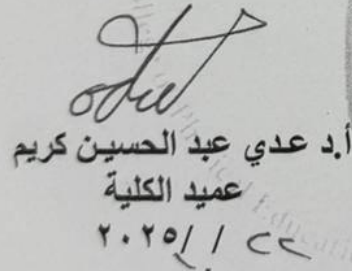 أ.د عدي عبد الحسين كريم
عميد الكلية
٢٠٢٥/ / ٢٢